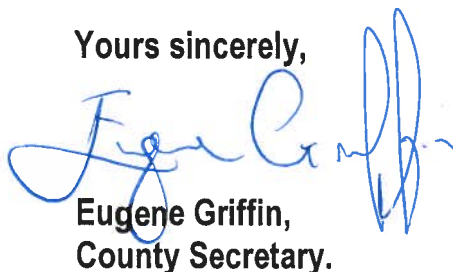 Yours sincerely,
Eugene Griffin
Eugene Griffin,
County Secretary.